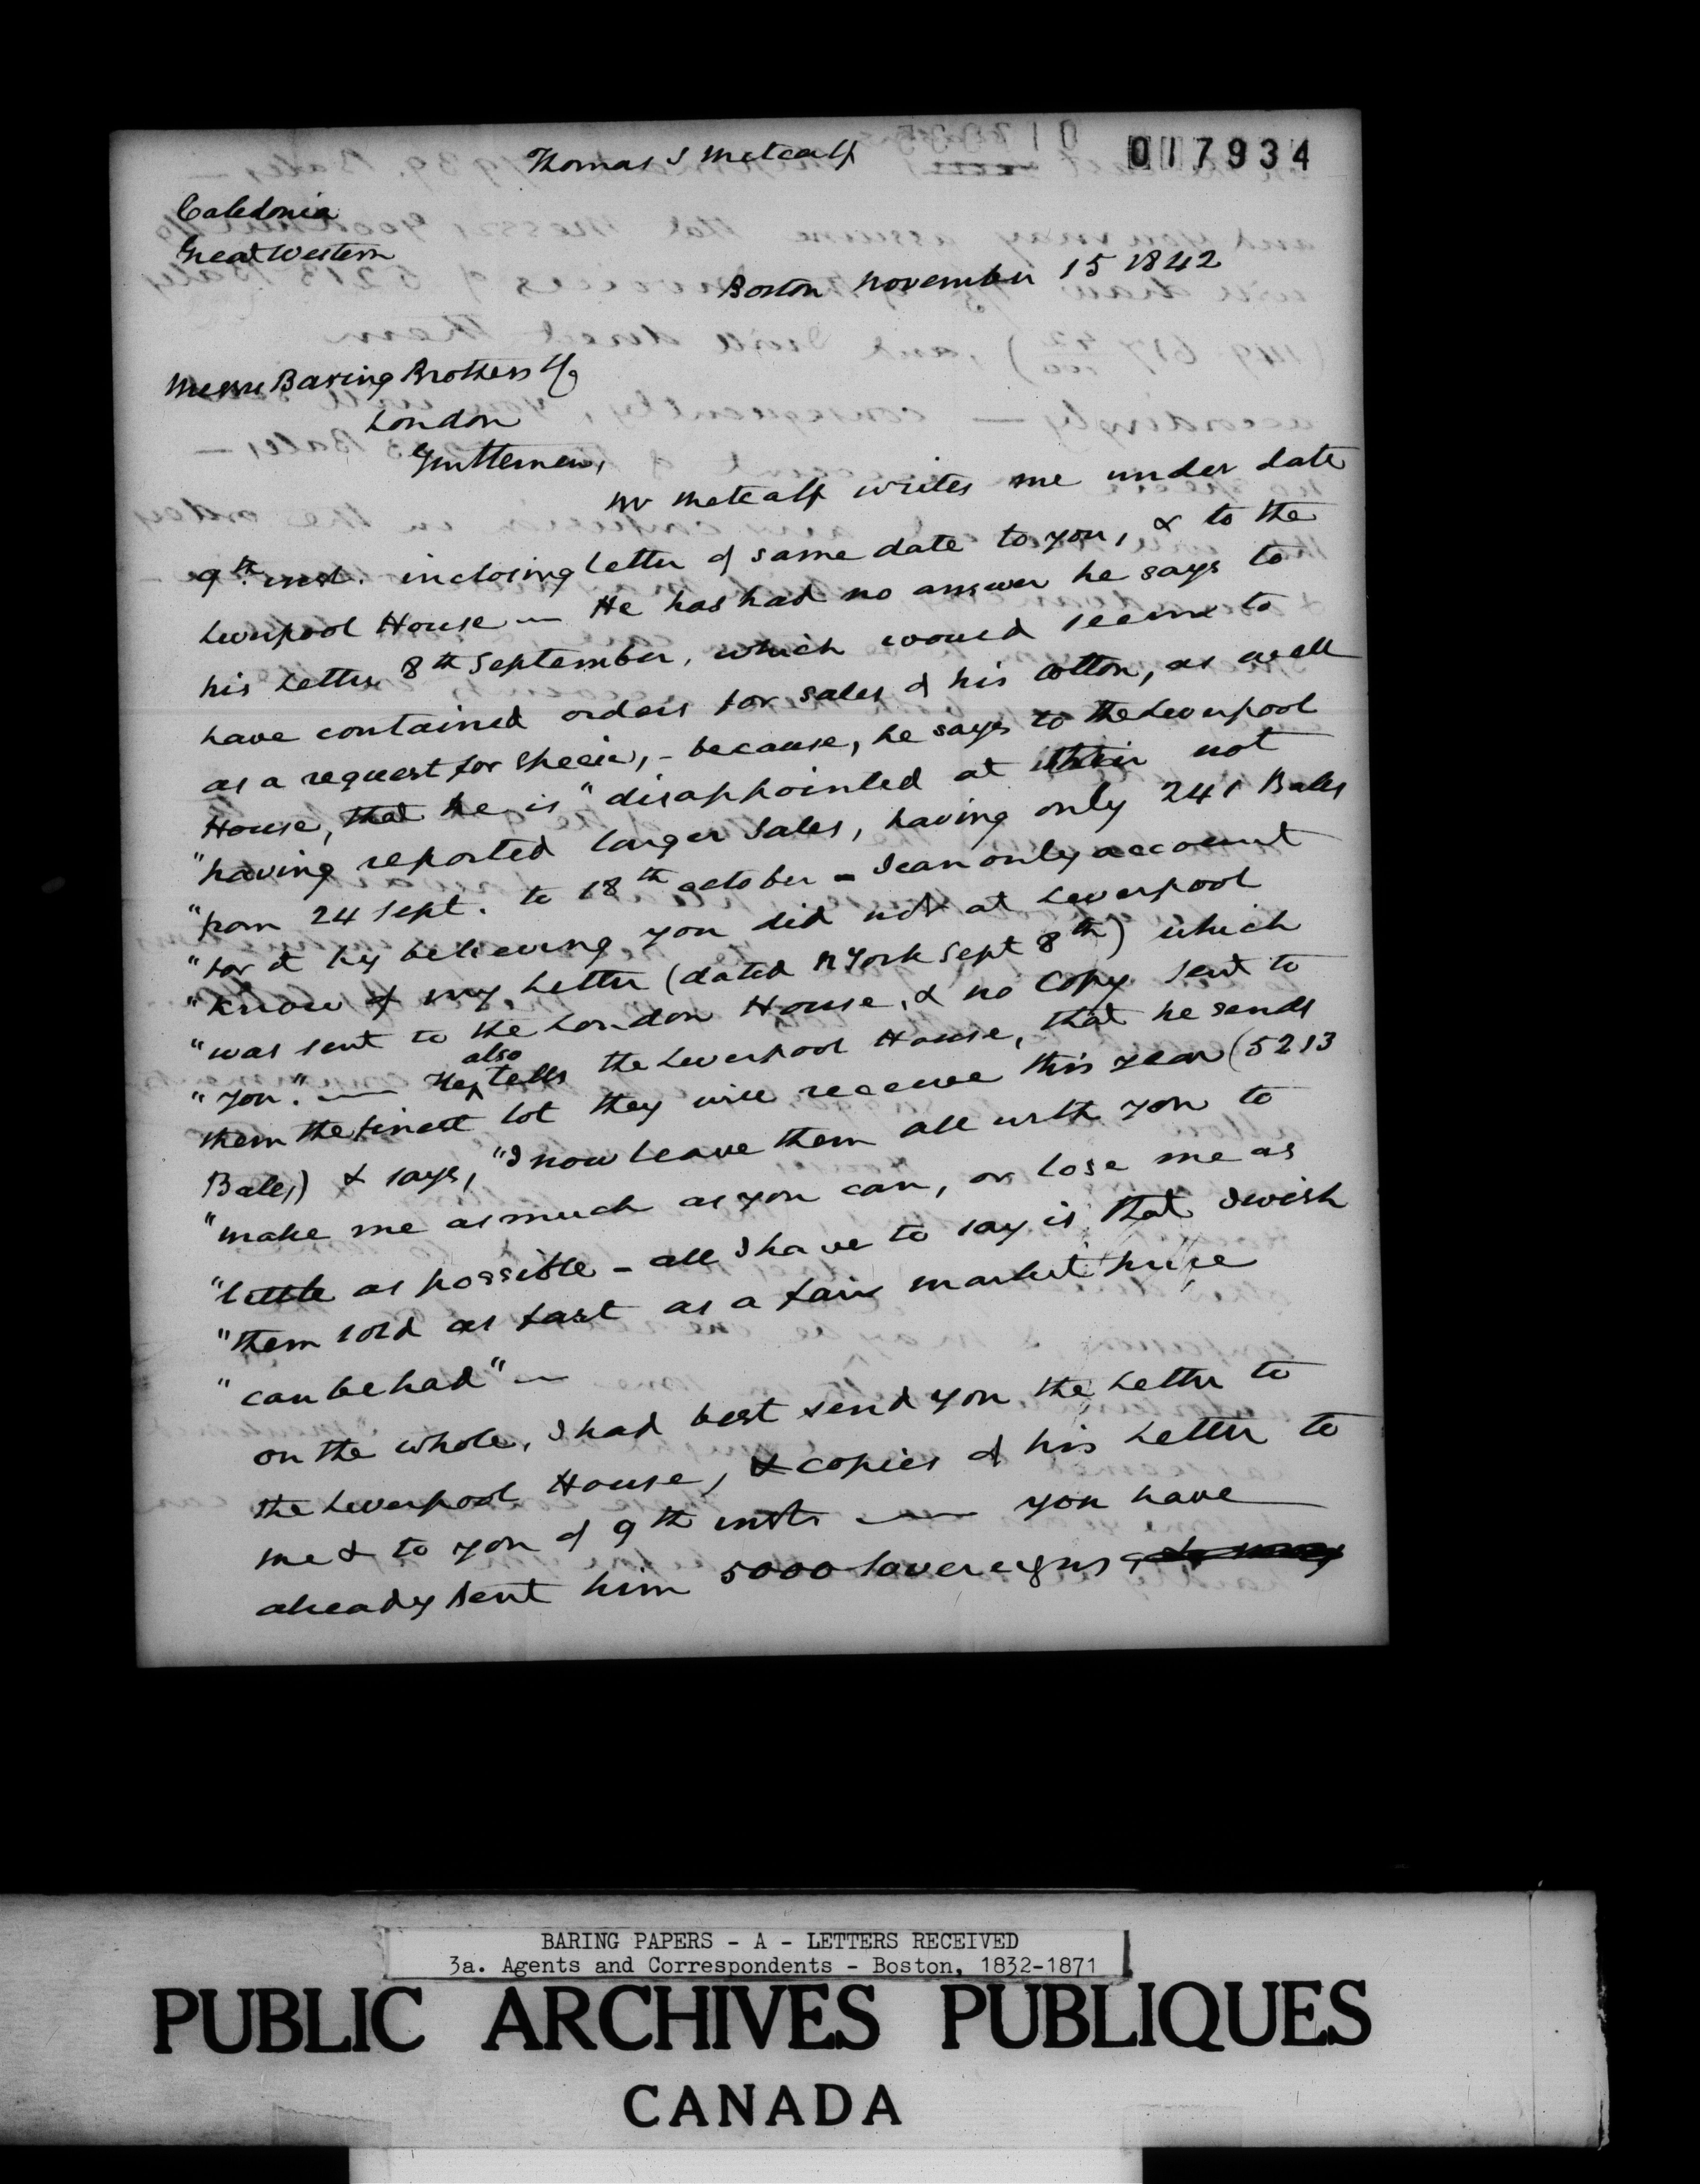 Thomas S Metcalf
017934
Caledonia
Great Western
Boston November 15 1842
Messrs Baring Brothers & Co
London
Gentlemen,
Mr Metcalf writes me under date
9th inst. inclosing letter of same date to you, & to the
Liverpool House — He has had no answer he says to
his Letter 8th September, which would seem to
have contained orders for sales of his cotton, as well
as a request for specie, - because, he says to the Liverpool
House, that he is "disappointed at their not
"having reported larger sales, having only 241 Bales
"from 24 Sept. to 18th october - I can only account
"for it by believing you did not at Liverpool
"know of my Letter (dated N York Sept 8th) which
"was sent to the London House, & no Copy sent to
"you." — He also tells the Liverpool House, that he sends
them the finest lot they will receive this year (5213
Bales) & says, "I now leave them all with you to
"make me as much as you can, or lose me as
"little as possible - all I have to say is that I wish
"them sold as fast as a fair market price
"can be had" —
on the whole, I had best send you the Letter to
the Liverpool House, & copies of his Letter to
me & to you of 9th inst — you have
already sent him 5000 sovereigns
BARING PAPERS - A - LETTERS RECEIVED
3a. Agents and Correspondents - Boston, 1832-1871
PUBLIC ARCHIVES PUBLIQUES
CANADA